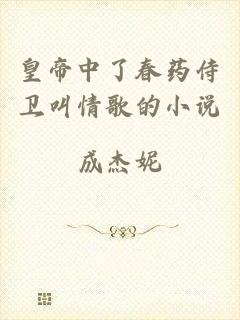 皇帝中了春药侍
卫叫情歌的小说
成杰妮